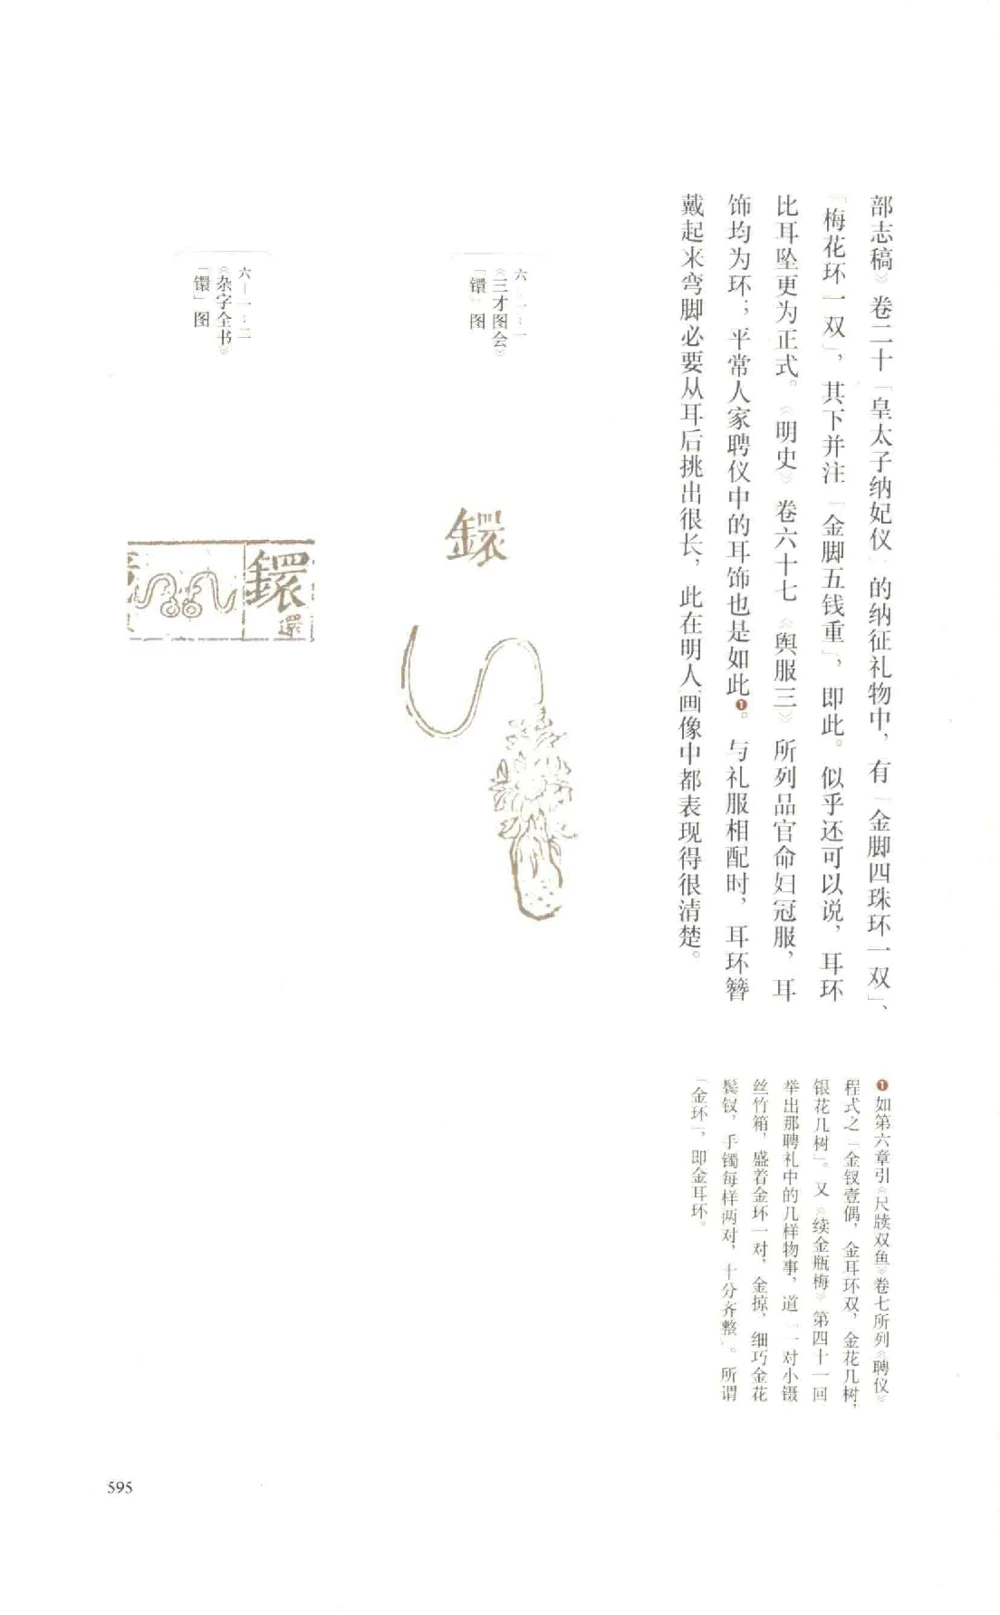 部志稿》卷二十「皇太子纳妃仪」的纳征礼物中，有「金脚四珠环一双」、
「梅花环一双」，其下并注「金脚五钱重」，即此。似乎还可以说，耳环
比耳坠更为正式。《明史》卷六十七《舆服三》所列品官命妇冠服，耳
饰均为环；平常人家聘仪中的耳饰也是如此❶。与礼服相配时，耳环簪
戴起来弯脚必要从耳后挑出很长，此在明人画像中都表现得很清楚。
六—一:一
《三才图会》
「镮」图
六—一:二
《杂字全书》
「镮」图
鐶
鐶
還
❶如第六章引《尺牍双鱼》卷七所列《聘仪》
程式之「金钗壹偶，金耳环双，金花几树，
银花几树」。又《续金瓶梅》第四十一回
举出那聘礼中的几样物事，道「一对小镊
丝竹箱，盛着金环一对，金掠，细巧金花
鬓钗，手镯每样两对，十分齐整」。所谓
「金环」，即金耳环。
595